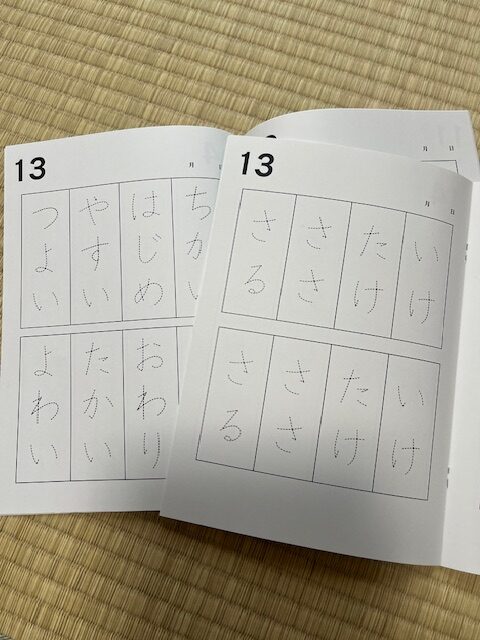 13
月
ちか
はじめ
やすい
つよい
おわり
たかい
よわい
月 日
13
月 日
いけ
たけ
ささ
さる
いけ
たけ
ささ
さる